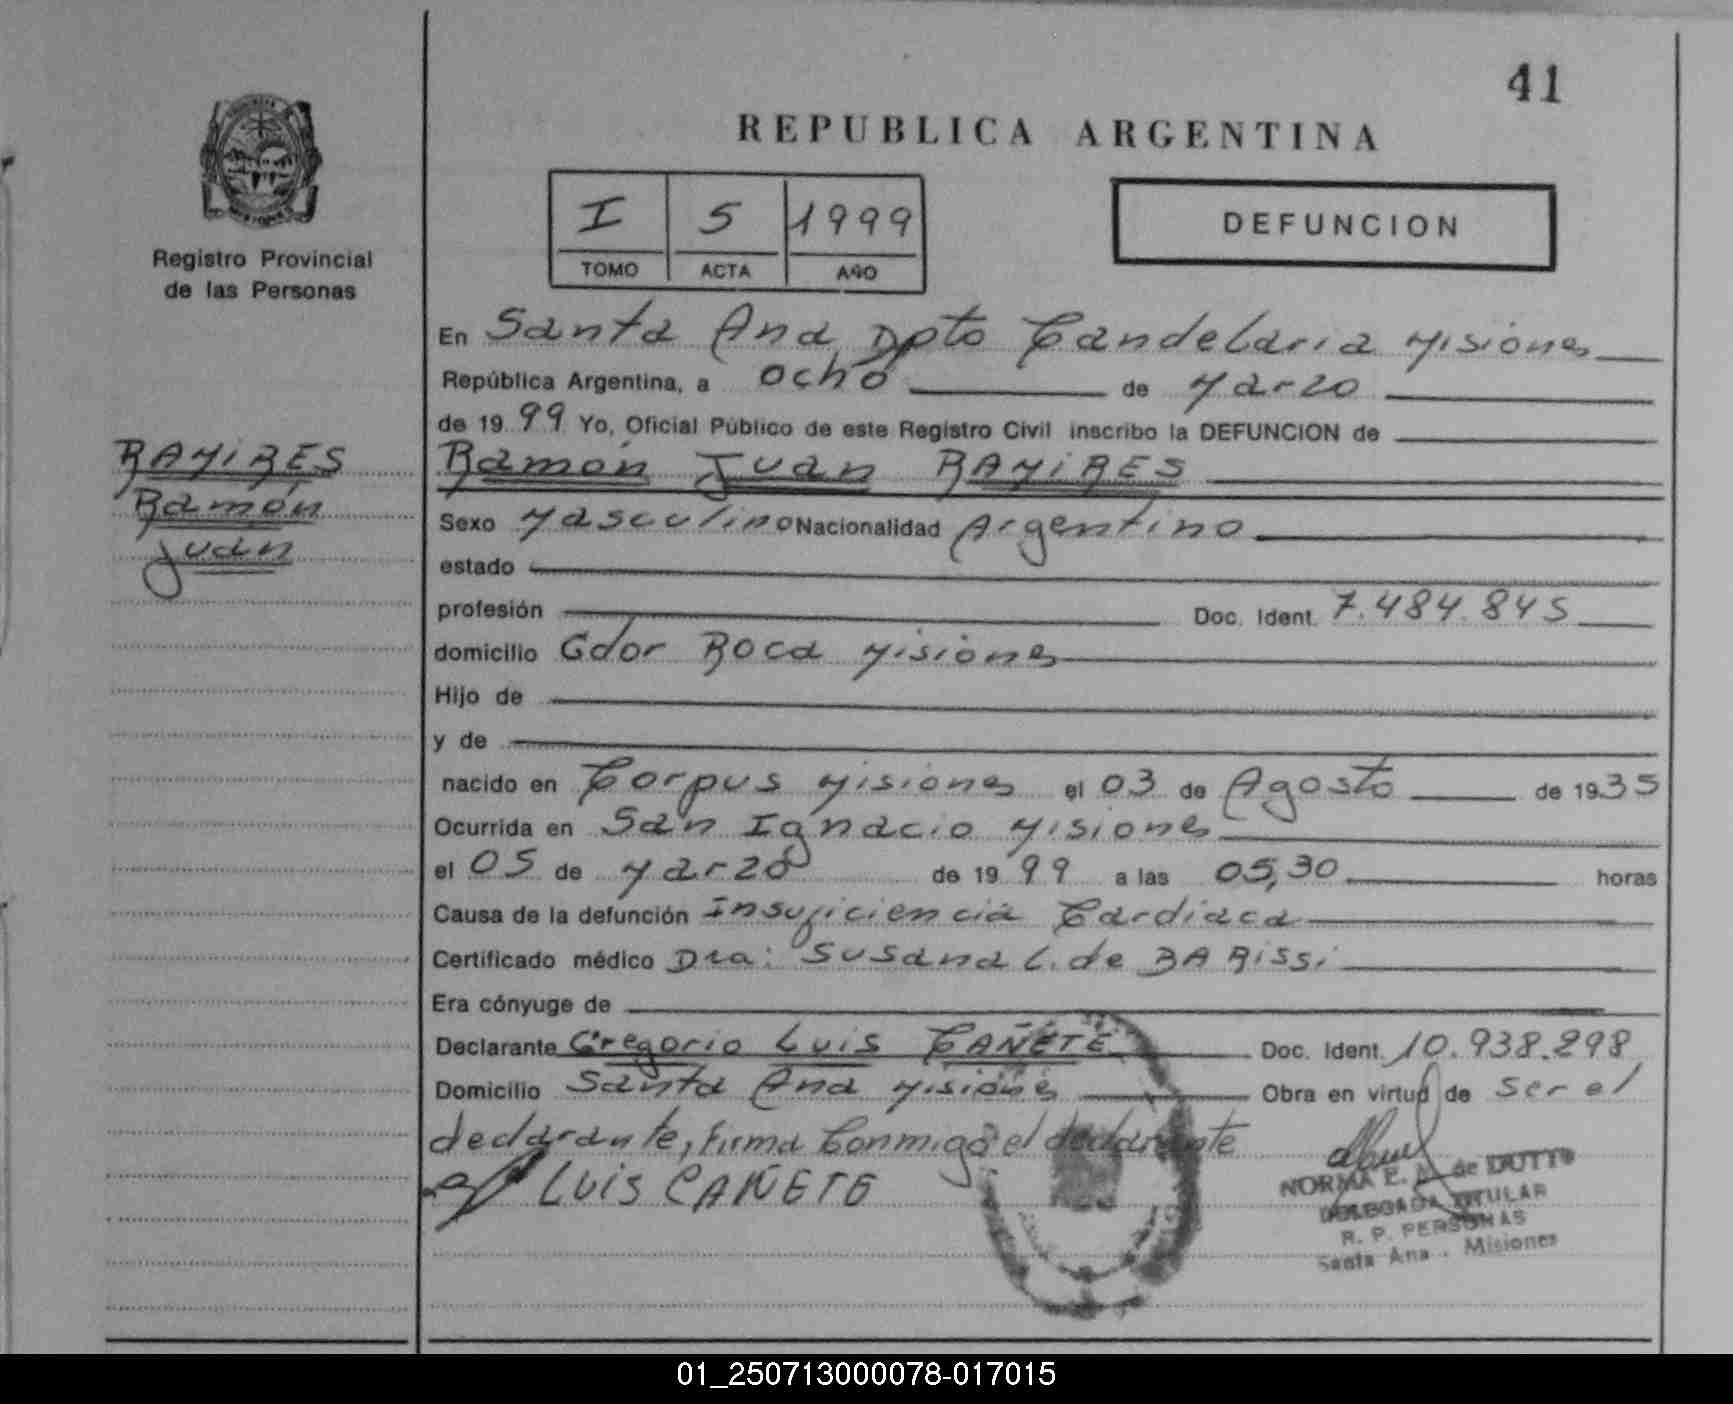 41
REPUBLICA ARGENTINA
I 5 1999
TOMO ACTA AÑO
DEFUNCION
Registro Provincial
de las Personas
En Santa Ana Dpto Candelaria Misiones
República Argentina, a ocho de Marzo
de 1999 Yo, Oficial Público de este Registro Civil inscribo la DEFUNCION de
RAMIRES
Ramón
Juan
Ramón Juan RAMIRES
Sexo Masculino Nacionalidad Argentino
estado
profesión Doc. Ident. 7.484.845
domicilio Gdor Roca Misiones
Hijo de
y de
nacido en Corpus Misiones el 03 de Agosto de 1935
Ocurrida en San Ignacio Misiones
el 05 de Marzo de 1999 a las 05,30 horas
Causa de la defunción Insuficiencia Cardiaca
Certificado médico Dra: Susana L. de BARissi
Era cónyuge de
Declarante Gregorio Luis CAÑETE Doc. Ident. 10.938.298
Domicilio Santa Ana Misiones Obra en virtud de ser el
declarante, firma conmigo el declarante
LUIS CAÑETE
NORMA E. de DUTTO
DELEGADA TITULAR
R. P. PERSONAS
Santa Ana - Misiones
01_250713000078-017015